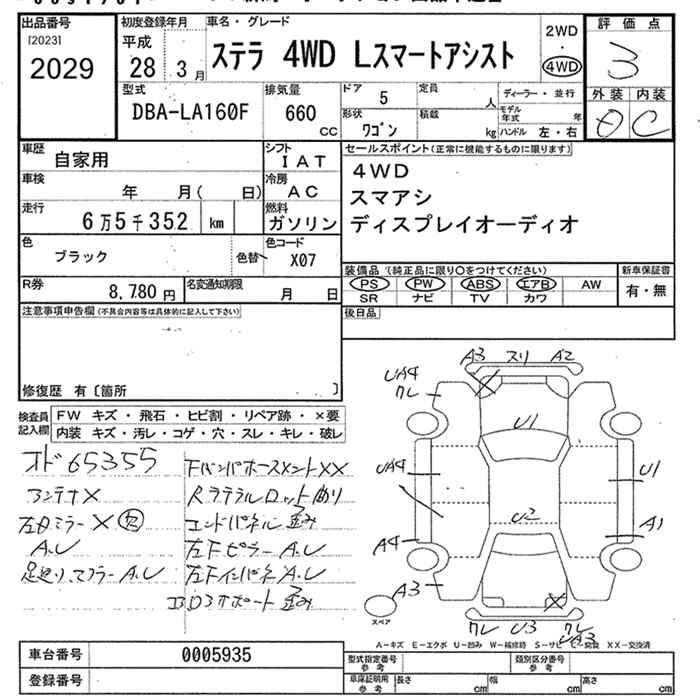 出品番号
[2023]
2029
初度登録年月
平成
28 3月
車名・グレード
ステラ 4WD Lスマートアシスト
2WD
・
4WD
評価点
3
外装 内装
C
型式
DBA-LA160F
排気量
660
cc
ドア 5
形状
ワゴン
定員
人
積載
kg
ディーラー・並行
モデル
年式 年
ハンドル 左・右
車歴
自家用
シフト
IAT
車検
年 月( 日)
冷房
AC
走行
6万5千352 km
燃料
ガソリン
色
ブラック
色替
色コード
X07
R券
8,780円
名変通知期限
月 日
セールスポイント(正常に機能するものに限ります)
4WD
スマアシ
ディスプレイオーディオ
装備品(純正品に限り○をつけてください)
PS PW ABS エアB AW
SR ナビ TV カワ
新車保証書
有・無
後日品
注意事項申告欄(不具合内容等は具体的に記入して下さい)
修復歴 有〔箇所 〕
検査員
記入欄
FW キズ・飛石・ヒビ割・リペア跡・×要
内装 キズ・汚レ・コゲ・穴・スレ・キレ・破レ
オド65355
アンテナX
A.U
足廻り、マフラーA.U
FバンパホースメントXX
Rラテラルロット曲り
エンドパネル歪み
左FピラーA.U
左FインパネA.U
A3 スリ A2
UA4
ワレ
U1
UA4
U1
U2
A1
A4
A3
スペア
ワレ U3 ワレ
UA3
A-キズ E-エクボ U-凹み W-補修跡 S-サビ C-腐食 XX-交換済
車台番号
0005935
登録番号
型式指定番号
参考
類別区分番号
参考
車庫証明用
参考
長さ cm
幅 cm
高さ cm